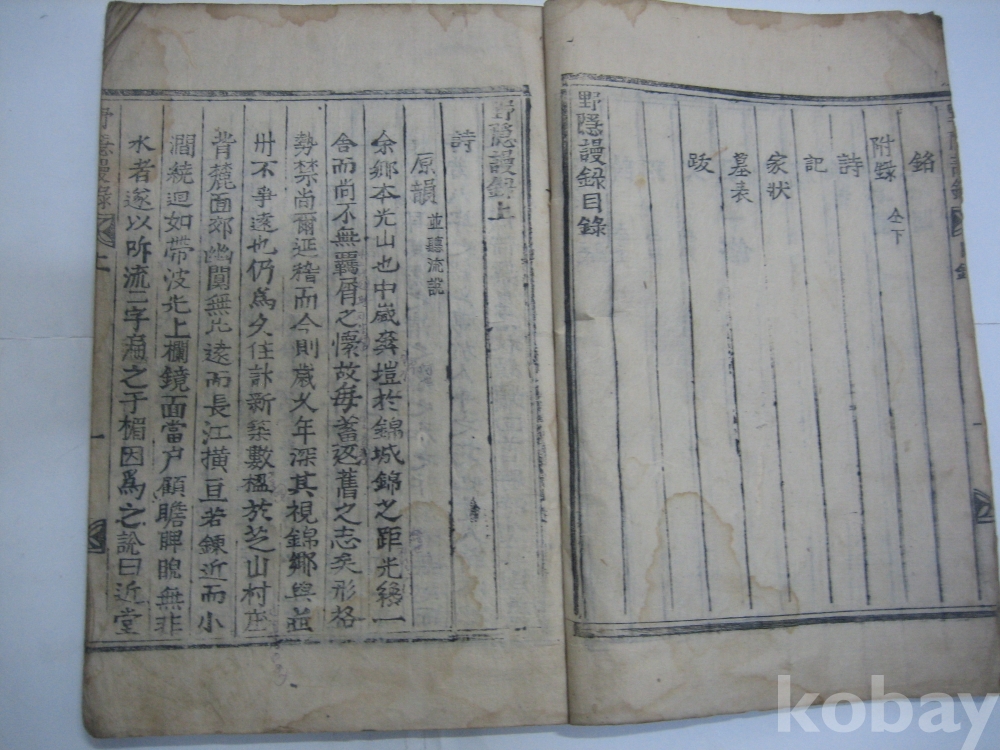 銘
附錄 仝下
詩
記
家狀
墓表
跋
野隱謾录目录
野隱謾录上
詩
原韻 並聽流說
余鄉本光山也中歲奔塏於錦城錦之距光終一
舍而尚不無羈屑之懷故每蓄返舊之志矣形格
勢禁尚爾延稽而今則歲久年深其視錦鄉與並
州不爭遠也仍爲久住計新築數楹於芝山村庄
背麓面郊幽閴無比遠而長江橫亘若鍊近而小
澗繞迴如帶波光上欄鏡面當户顧瞻睥睨無非
水者遂以听流二字扁之于楣因爲之說曰近堂
野隱謾录 上
一
kobay